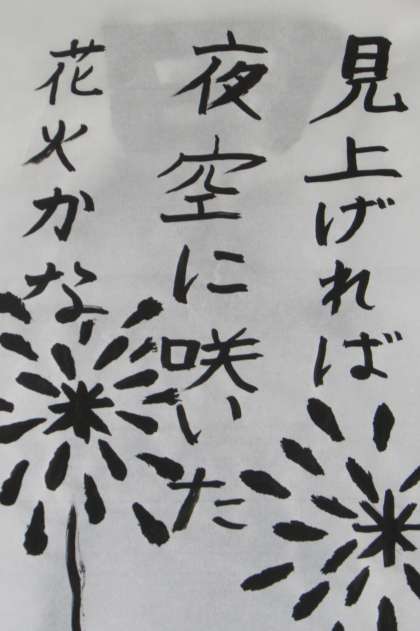 見上げれば
夜空に咲いた
花火かな